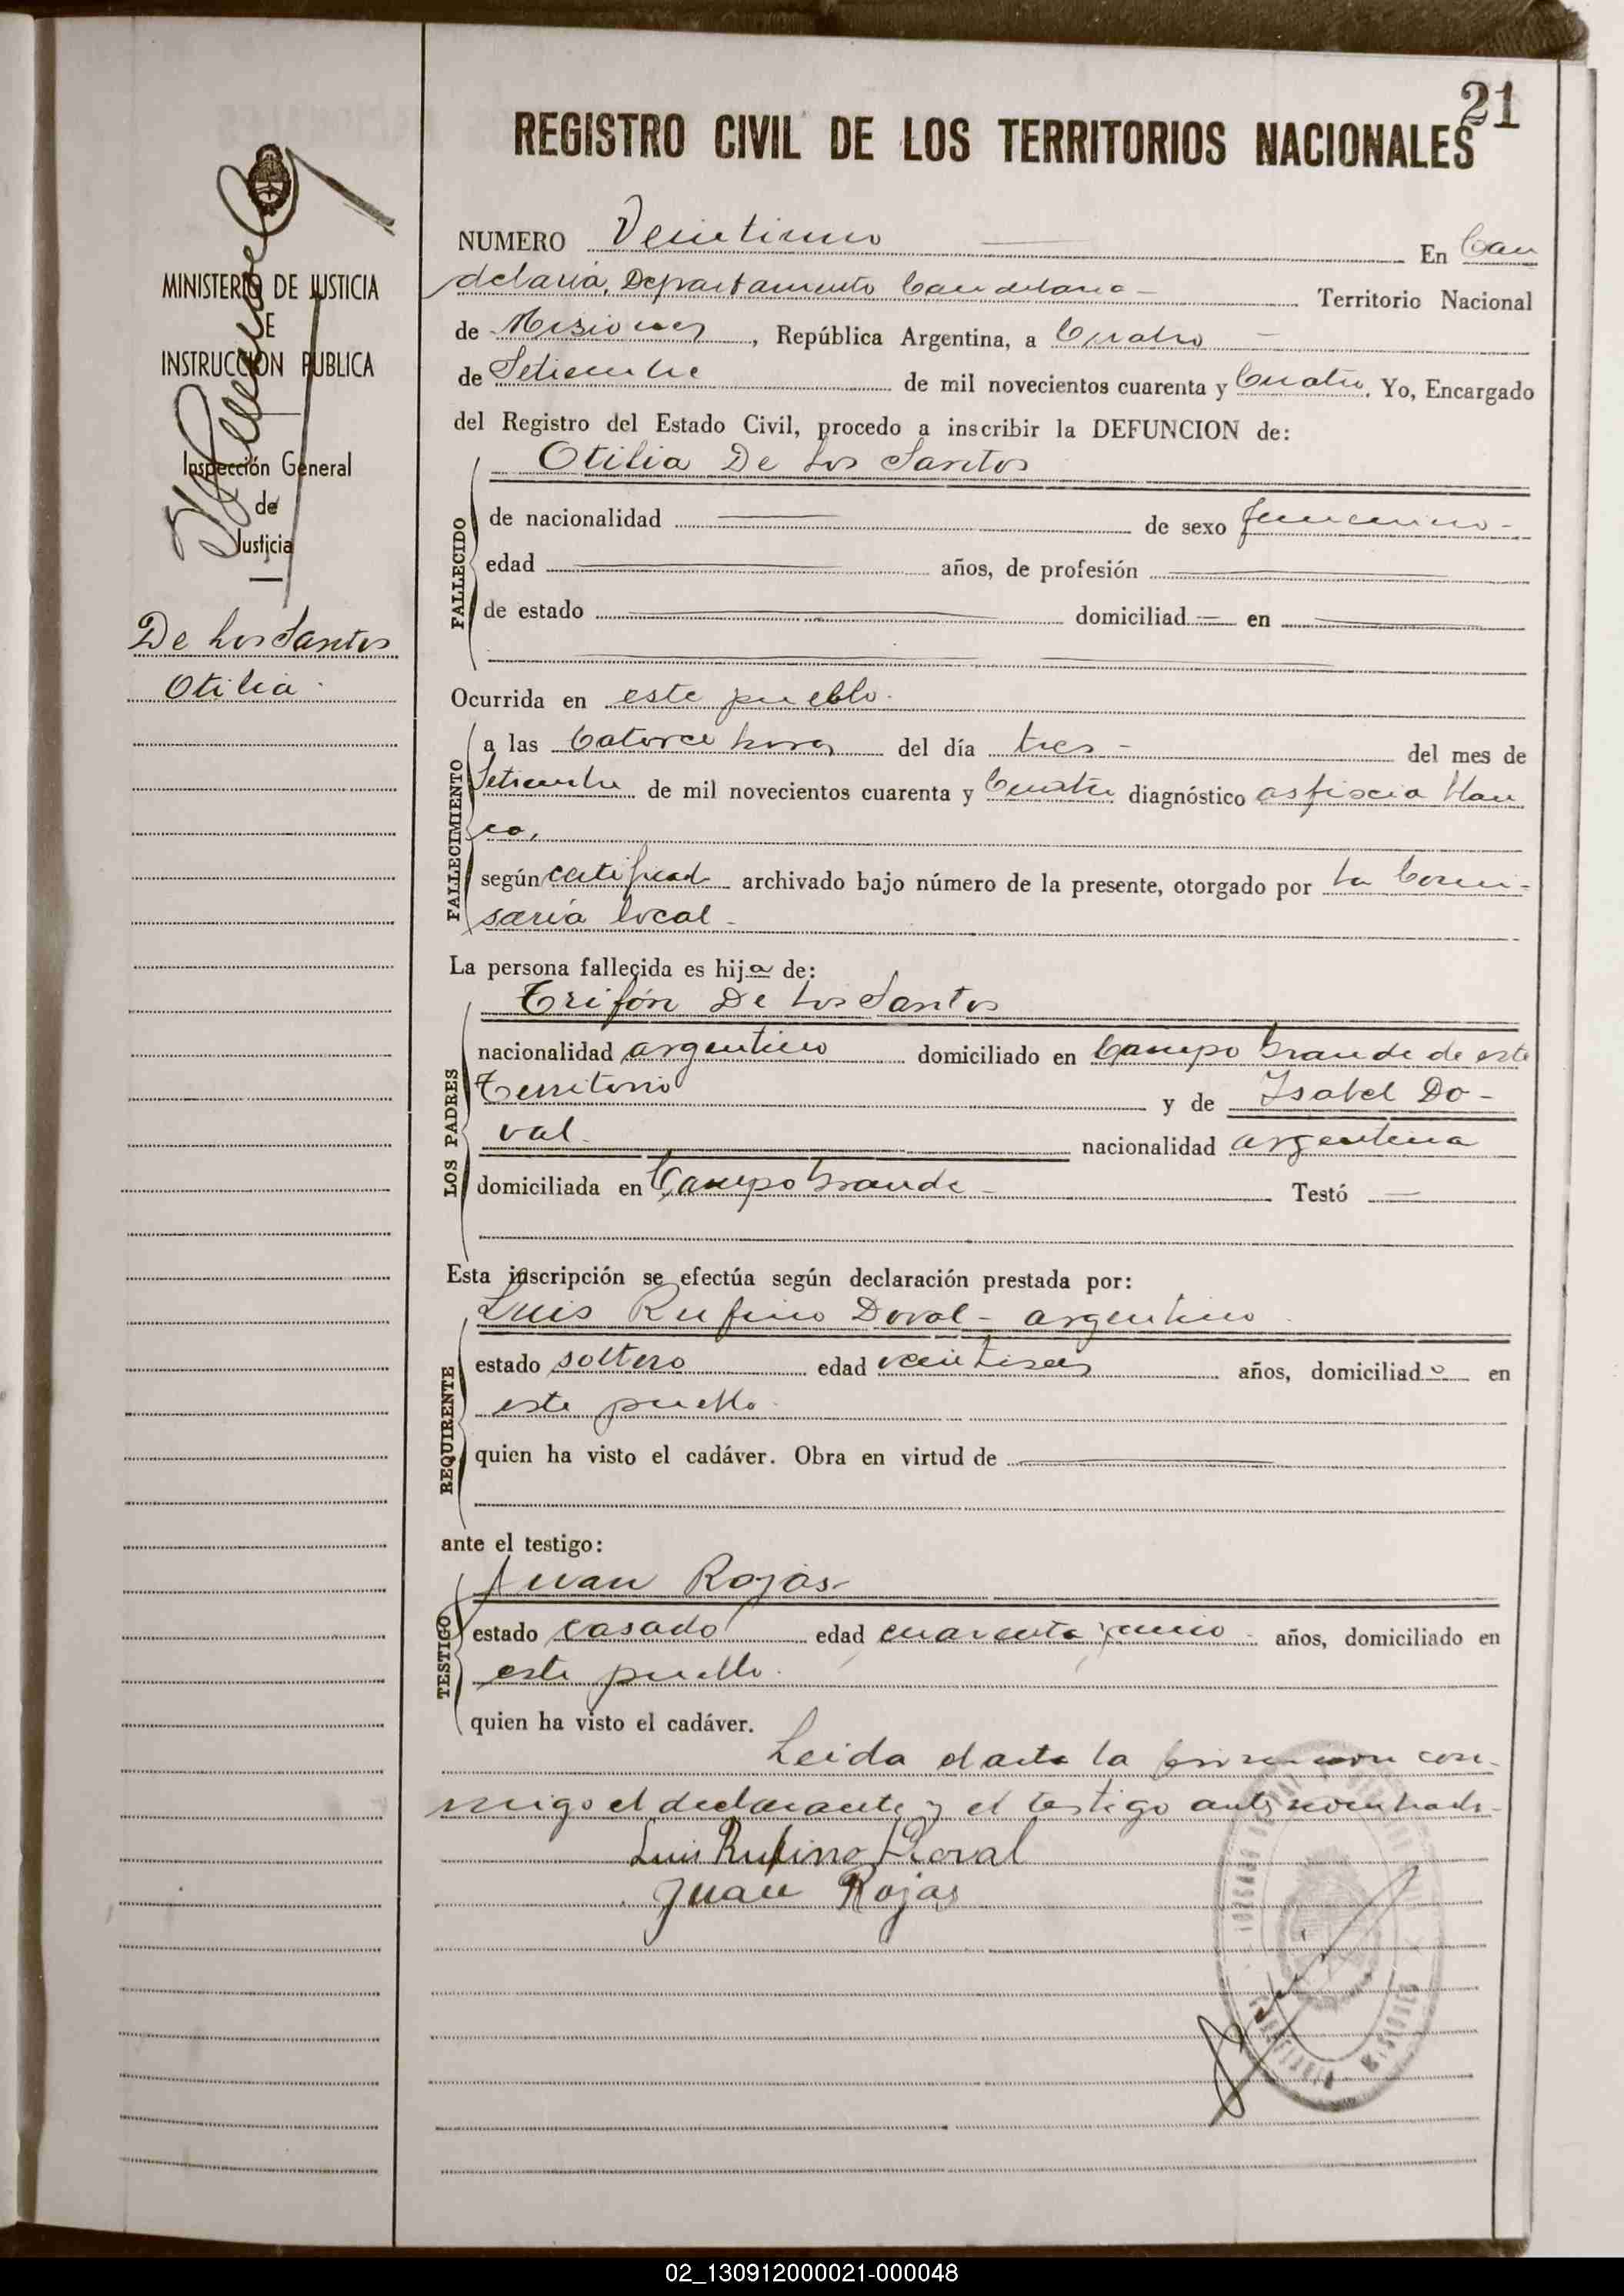 21
REGISTRO CIVIL DE LOS TERRITORIOS NACIONALES
MINISTERIO DE JUSTICIA
E
INSTRUCCION PUBLICA
Inspección General
de
Justicia
De Los Santos
Otilia.
NUMERO Veintiuno En Can
delaria, Departamento Candelaria - Territorio Nacional
de Misiones, República Argentina, a Cuatro -
de Setiembre de mil novecientos cuarenta y Cuatro. Yo, Encargado
del Registro del Estado Civil, procedo a inscribir la DEFUNCION de:
Otilia De Los Santos
FALLECIDO
de nacionalidad de sexo femenino -
edad años, de profesión
de estado domiciliad en
Ocurrida en este pueblo.
FALLECIMIENTO
a las Catorce horas del día tres - del mes de
Setiembre de mil novecientos cuarenta y Cuatro diagnóstico asfixia blan
ca,
según certificad archivado bajo número de la presente, otorgado por la Comi-
saría local -
La persona fallecida es hija de:
Trifón De Los Santos
LOS PADRES
nacionalidad argentino domiciliado en Campo Grande de este
Territorio y de Isabel Do-
val. nacionalidad argentina
domiciliada en Campo Grande - Testó
Esta inscripción se efectúa según declaración prestada por:
Luis Rufino Doval - argentino.
REQUIRENTE
estado soltero edad veintiseis años, domiciliado en
este pueblo.
quien ha visto el cadáver. Obra en virtud de
ante el testigo:
Juan Rojas -
TESTIGO
estado casado edad cuarenta y años, domiciliado en
este pueblo.
quien ha visto el cadáver.
Leida el acta la con-
migo el declarante y el testigo antes nombrado -
Luis Rufino Doval
Juan Rojas
CANDELARIA MISIONES
02_130912000021-000048